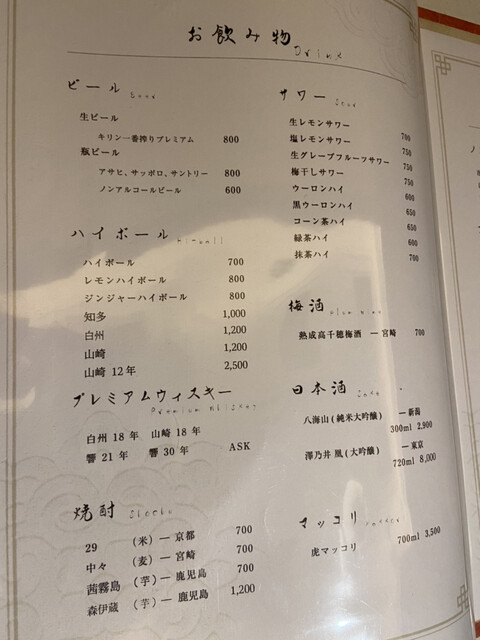 お飲み物
Drink
ビール
Beer
生ビール
キリン一番搾りプレミアム 800
瓶ビール
アサヒ、サッポロ、サントリー 800
ノンアルコールビール 600
ハイボール
ハイボール 700
レモンハイボール 800
ジンジャーハイボール 800
知多 1,000
白州 1,200
山崎 1,200
山崎 12年 2,500
プレミアムウィスキー
Premium Whiskey
白州 18年 山崎 18年
響 21年 響 30年 ASK
焼酎
Shochu
29 (米) ― 京都 700
中々 (麦) ― 宮崎 700
茜霧島 (芋) ― 鹿児島 700
森伊蔵 (芋) ― 鹿児島 1,200
サワー
Sour
生レモンサワー 700
塩レモンサワー 750
生グレープフルーツサワー 750
梅干しサワー 750
ウーロンハイ 600
黒ウーロンハイ 650
コーン茶ハイ 650
緑茶ハイ 600
抹茶ハイ 700
梅酒
熟成高千穂梅酒 ― 宮崎 700
日本酒
Sake
八海山(純米大吟醸) ― 新潟
300ml 2,900
澤乃井 凰(大吟醸) ― 東京
720ml 8,000
マッコリ
虎マッコリ 700ml 3,500